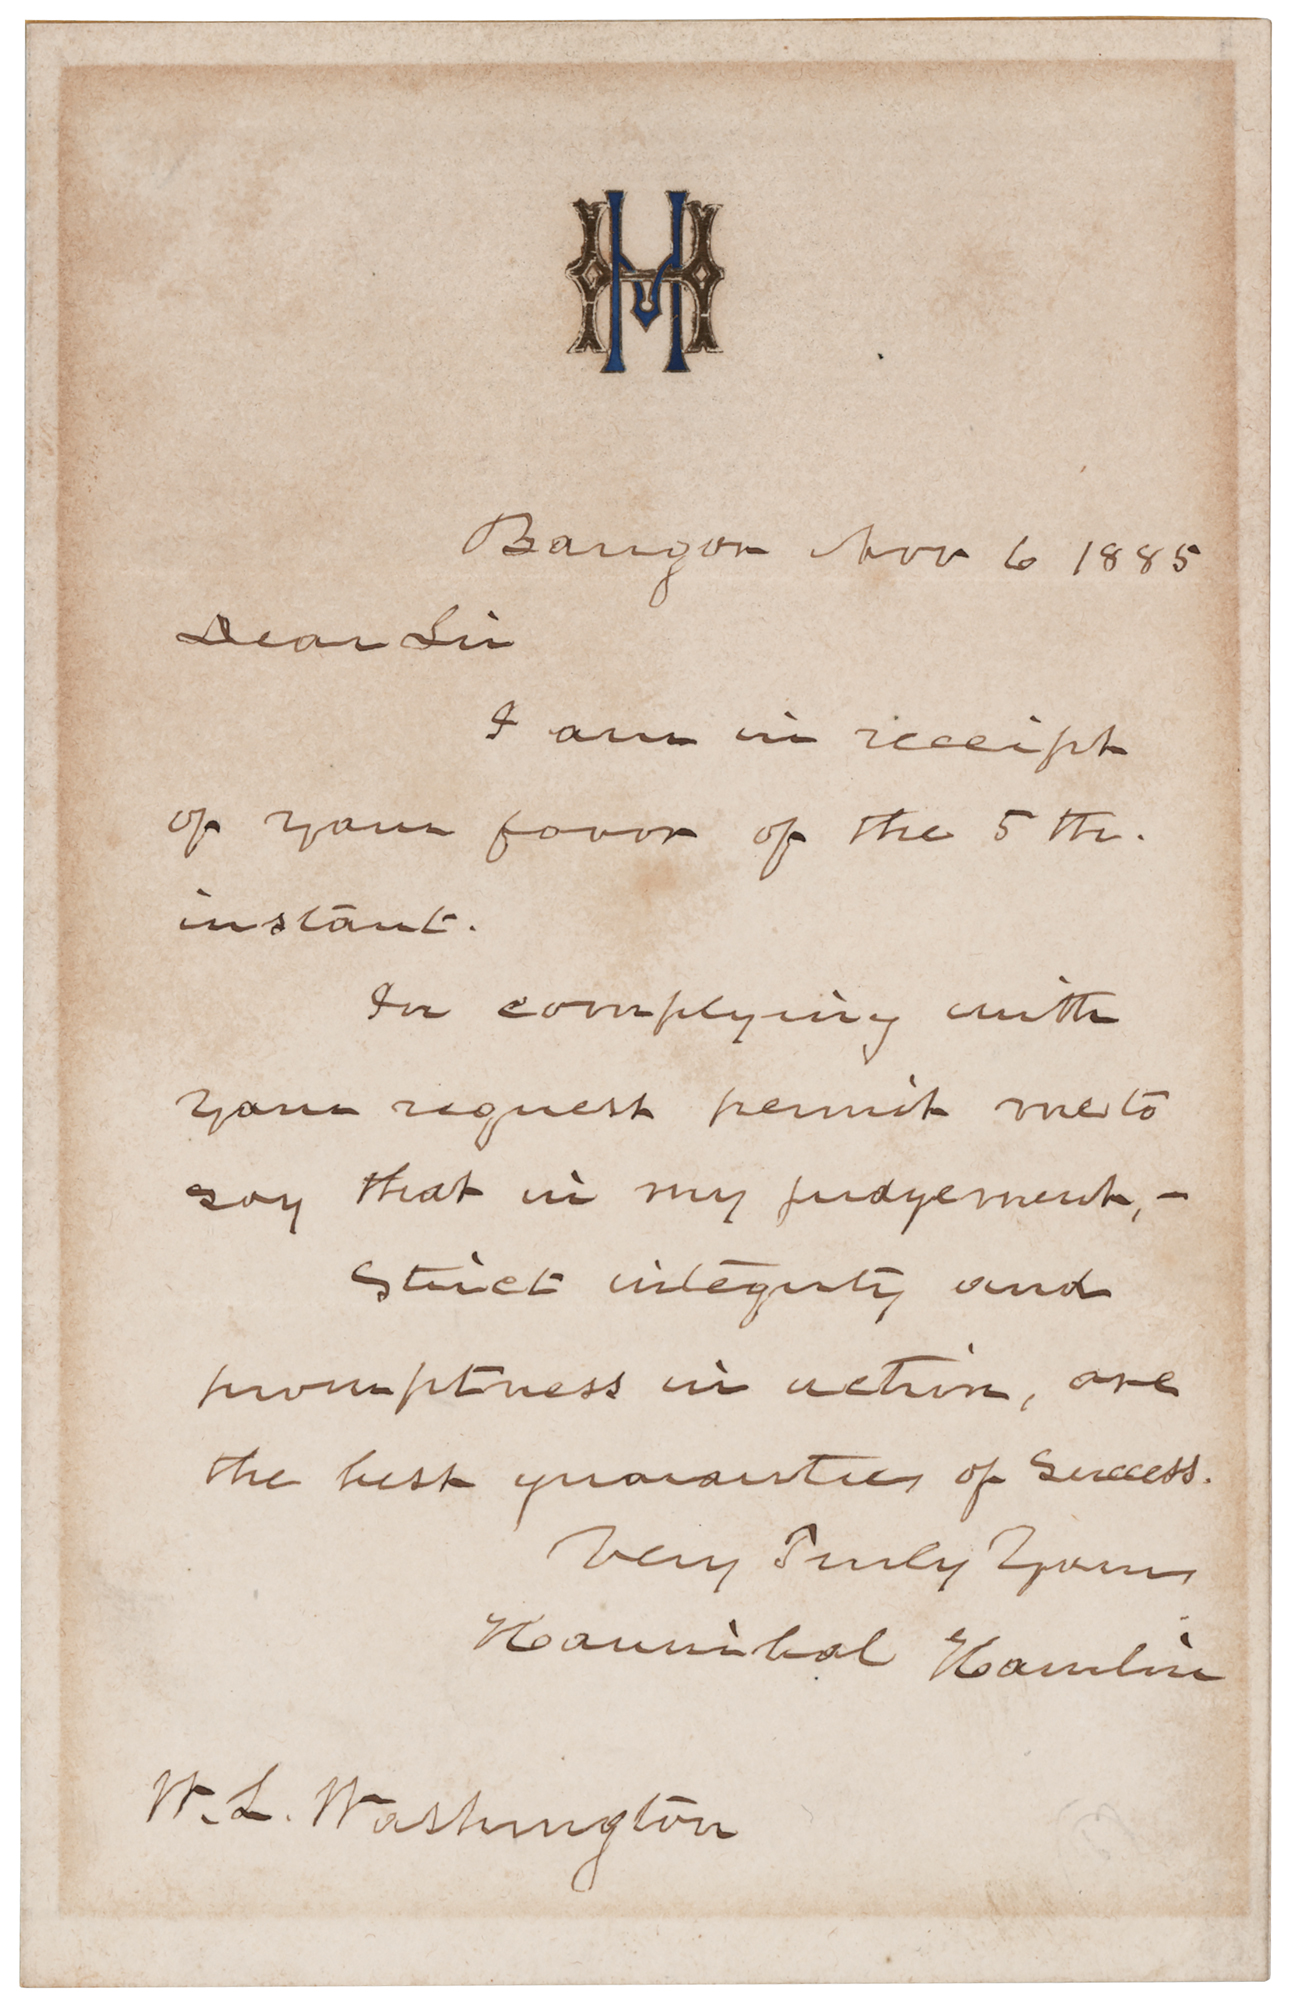 HH
Bangor Nov 6 1885
Dear Sir
I am in receipt
of your favor of the 5th.
instant.
In complying with
your request permit me to
say that in my judgement, -
Strict integrity and
promptness in action, are
the best guaranties of Success.
Very Truly Yours
Hannibal Hamlin
W. L. Washington